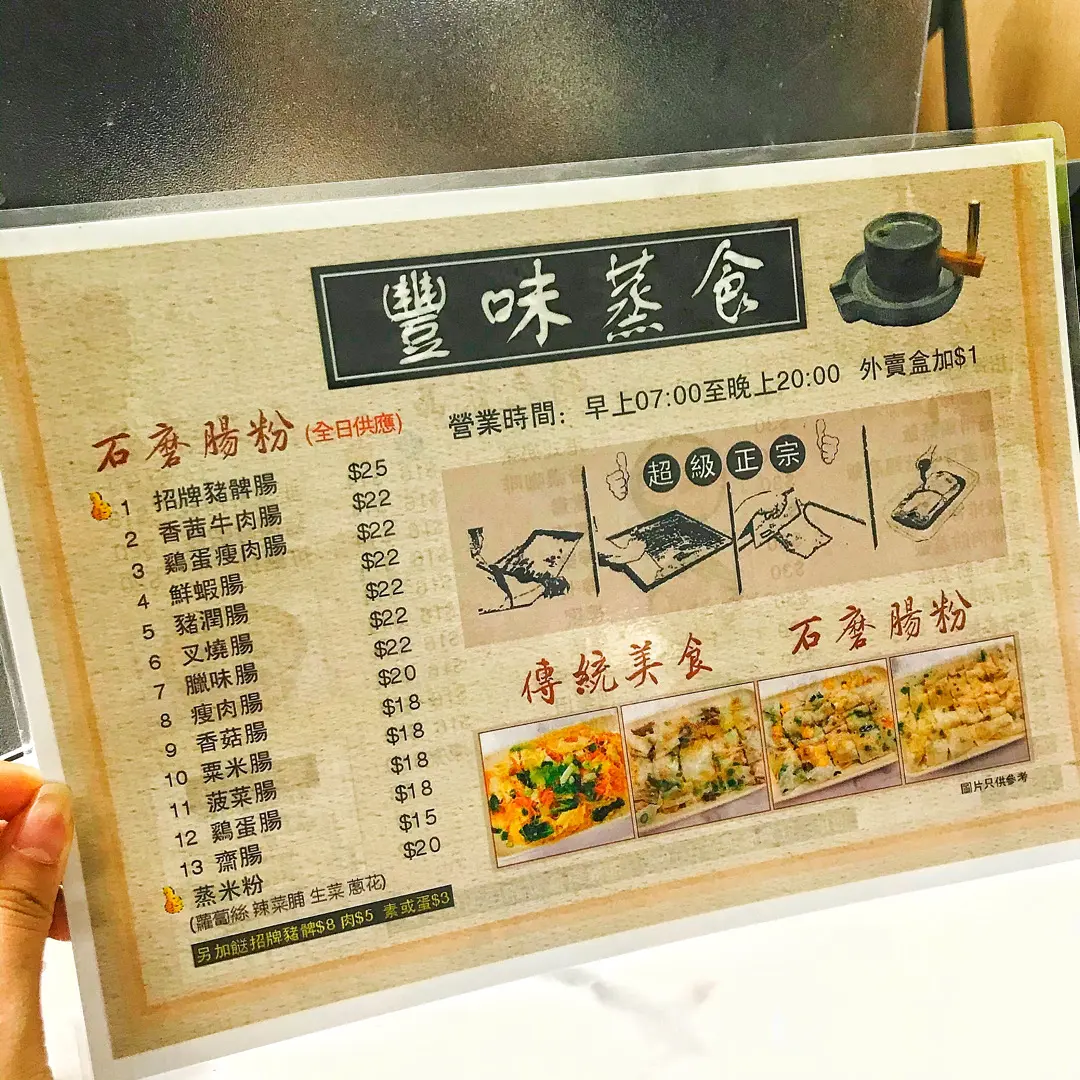 豐味蒸食
營業時間：早上07:00至晚上20:00 外賣盒加$1
石磨腸粉 (全日供應)
1 招牌豬髀腸 $25
2 香茜牛肉腸 $22
3 鷄蛋瘦肉腸 $22
4 鮮蝦腸 $22
5 豬潤腸 $22
6 叉燒腸 $22
7 臘味腸 $22
8 瘦肉腸 $20
9 香菇腸 $18
10 粟米腸 $18
11 菠菜腸 $18
12 鷄蛋腸 $18
13 齋腸 $15
蒸米粉 $20
(蘿蔔絲 辣菜脯 生菜 蔥花)
另加餸招牌豬髀$8 肉$5 素或蛋$3
超級正宗
傳統美食 石磨腸粉
圖片只供參考